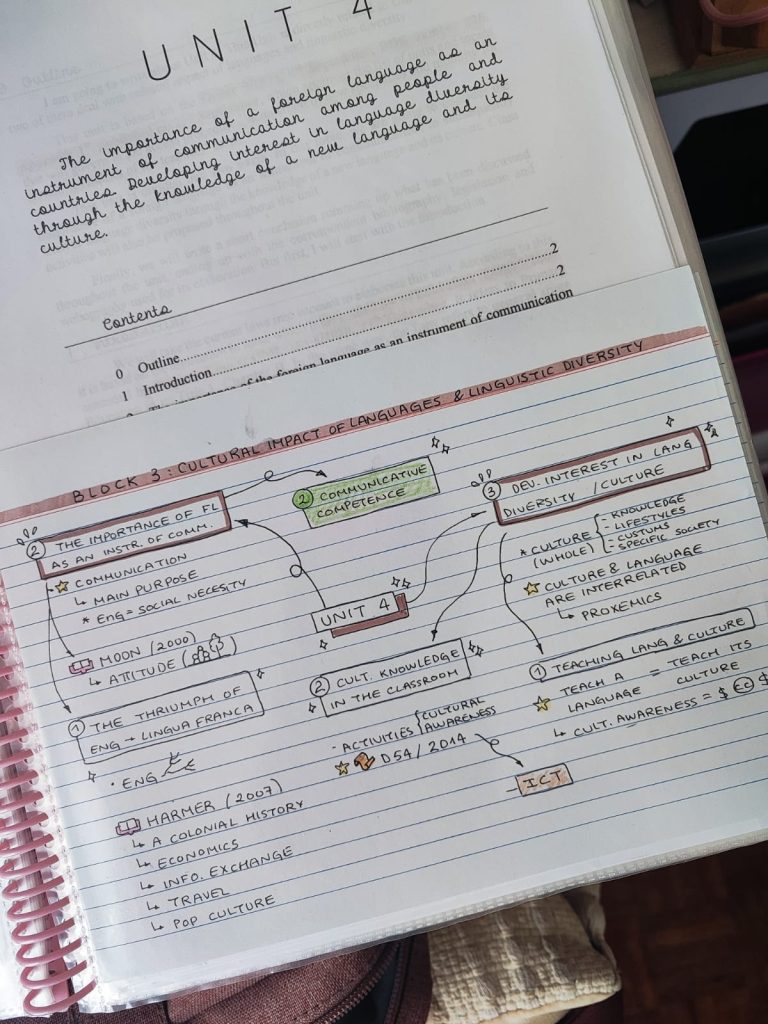 UNIT 4
The importance of a foreign language as an
instrument of communication among people and
countries. Developing interest in language diversity
through the knowledge of a new language and its
culture.
Contents
0 Outline.....2
1 Introduction.....2
The importance of the foreign language as an instrument of communication
BLOCK 3: CULTURAL IMPACT OF LANGUAGES & LINGUISTIC DIVERSITY
② THE IMPORTANCE OF FL
AS AN INSTR. OF COMM.
COMMUNICATION
↳ MAIN PURPOSE
* ENG = SOCIAL NECESITY
MOON (2000)
↳ ATTITUDE ( )
① THE THRIUMPH OF
ENG → LINGUA FRANCA
· ENG
HARMER (2007)
↳ A COLONIAL HISTORY
↳ ECONOMICS
↳ INFO. EXCHANGE
↳ TRAVEL
↳ POP CULTURE
② COMMUNICATIVE
COMPETENCE
UNIT 4
② CULT. KNOWLEDGE
IN THE CLASSROOM
- ACTIVITIES { CULTURAL
AWARENESS
D54/2014
- ICT
③ DEV. INTEREST IN LANG
DIVERSITY / CULTURE
* CULTURE
(WHOLE)
- KNOWLEDGE
- LIFESTYLES
- CUSTUMS
- SPECIFIC SOCIETY
CULTURE & LANGUAGE
ARE INTERRELATED
↳ PROXEMICS
① TEACHING LANG & CULTURE
TEACH A LANGUAGE = TEACH ITS CULTURE
↳ CULT. AWARENESS = $ CC $